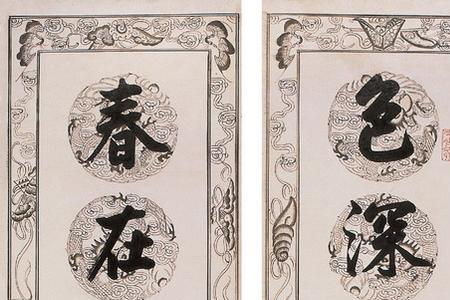 色深
春在